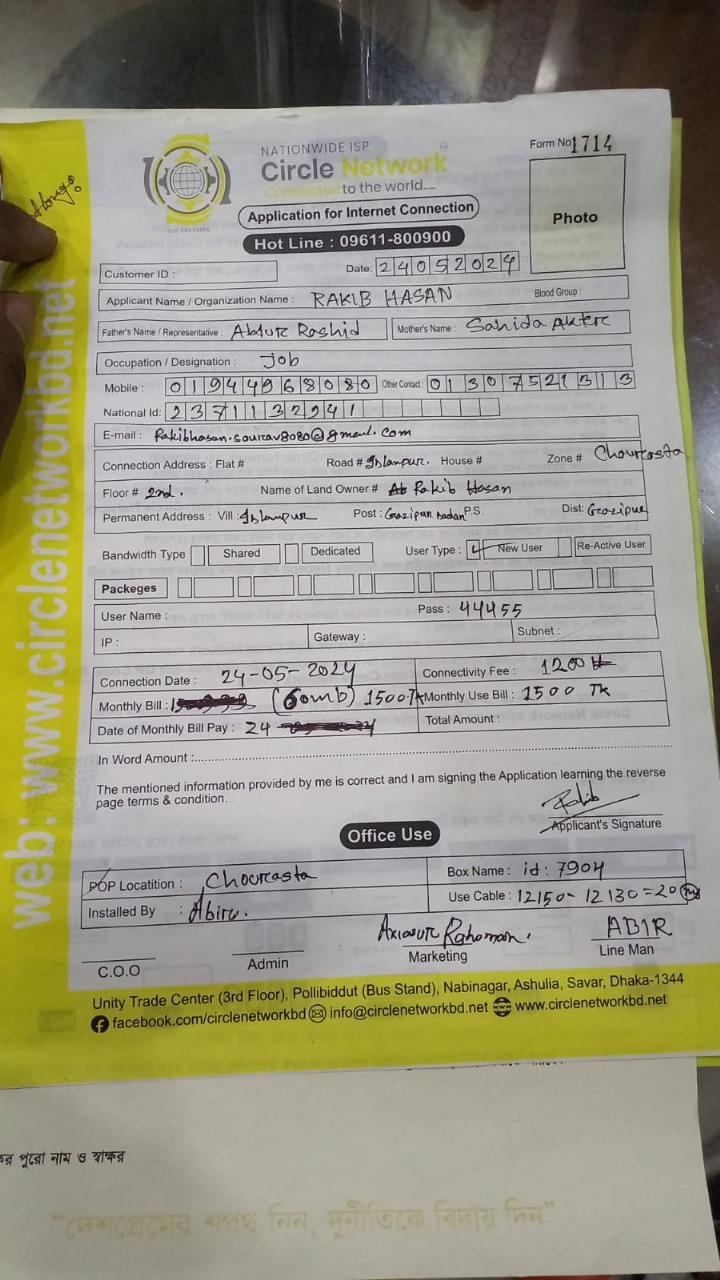 NATIONWIDE ISP
Circle Network
Connected to the world.....
ISO 9001:2015
Form No 1714
Photo
Application for Internet Connection
Hot Line : 09611-800900
Customer ID :
Date: 24052024
Applicant Name / Organization Name : RAKIB HASAN Blood Group :
Father's Name / Representative : Abdur Rashid Mother's Name : Sahida Akter
Occupation / Designation : job
Mobile : 01944968080 Other Contact : 01307521313
National Id: 2371132941
E-mail : Rakibhasan.sourav8080@gmail.com
Connection Address : Flat # Road # Ihlampur. House # Zone # Chourasta
Floor # 2nd. Name of Land Owner # Rakib Hasan
Permanent Address : Vill : Ihlampur Post : Gazipur sadar P.S. Dist: Gazipur
Bandwidth Type Shared Dedicated User Type : New User Re-Active User
Packeges
User Name : Pass : 44455
IP : Gateway : Subnet :
Connection Date : 24-05-2024 Connectivity Fee : 1200 tk
Monthly Bill : (60mb) 1500Tk Monthly Use Bill : 1500 TK
Date of Monthly Bill Pay : 24 Total Amount :
In Word Amount :
The mentioned information provided by me is correct and I am signing the Application learning the reverse
page terms & condition.
Rakib
Applicant's Signature
Office Use
POP Locatition : Chourasta Box Name : id: 7904
Installed By : Abir. Use Cable : 12150- 12130=20
Rahoman. ABIR
C.O.O Admin Marketing Line Man
Unity Trade Center (3rd Floor), Pollibiddut (Bus Stand), Nabinagar, Ashulia, Savar, Dhaka-1344
facebook.com/circlenetworkbd info@circlenetworkbd.net www.circlenetworkbd.net
web: www.circlenetworkbd.net
পুরো নাম ও স্বাক্ষর
“দেশপ্রেমের শপথ নিন, দুর্নীতিকে বিদায় দিন”